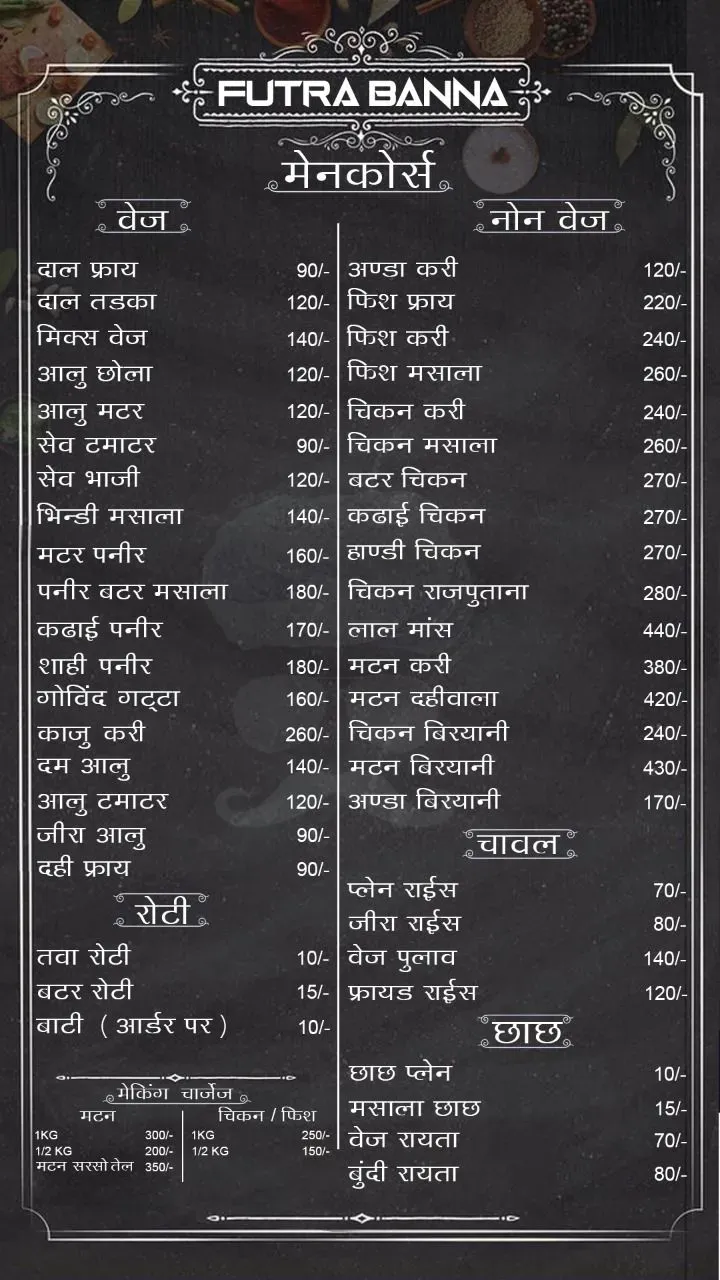 FUTRA BANNA
मेनकोर्स
वेज
दाल फ्राय 90/-
दाल तडका 120/-
मिक्स वेज 140/-
आलु छोला 120/-
आलु मटर 120/-
सेव टमाटर 90/-
सेव भाजी 120/-
भिन्डी मसाला 140/-
मटर पनीर 160/-
पनीर बटर मसाला 180/-
कढाई पनीर 170/-
शाही पनीर 180/-
गोविंद गट्टा 160/-
काजु करी 260/-
दम आलु 140/-
आलु टमाटर 120/-
जीरा आलु 90/-
दही फ्राय 90/-
रोटी
तवा रोटी 10/-
बटर रोटी 15/-
बाटी ( आर्डर पर ) 10/-
मेकिंग चार्जेज
मटन
1KG 300/-
1/2 KG 200/-
मटन सरसो तेल 350/-
चिकन / फिश
1KG 250/-
1/2 KG 150/-
नोन वेज
अण्डा करी 120/-
फिश फ्राय 220/-
फिश करी 240/-
फिश मसाला 260/-
चिकन करी 240/-
चिकन मसाला 260/-
बटर चिकन 270/-
कढाई चिकन 270/-
हाण्डी चिकन 270/-
चिकन राजपुताना 280/-
लाल मांस 440/-
मटन करी 380/-
मटन दहीवाला 420/-
चिकन बिरयानी 240/-
मटन बिरयानी 430/-
अण्डा बिरयानी 170/-
चावल
प्लेन राईस 70/-
जीरा राईस 80/-
वेज पुलाव 140/-
फ्रायड राईस 120/-
छाछ
छाछ प्लेन 10/-
मसाला छाछ 15/-
वेज रायता 70/-
बुंदी रायता 80/-